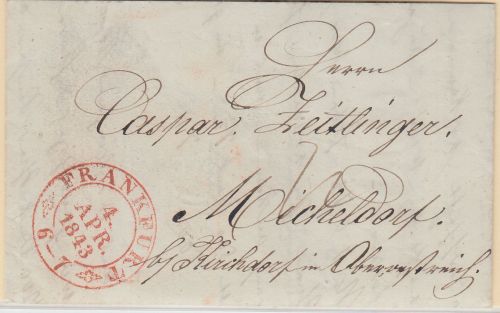 Herrn
Caspar. Zeitlinger.
Micheldorf.
by Kirchdorf in Oberoestreich.
FRANKFURT
4.
APR.
1843
6-7